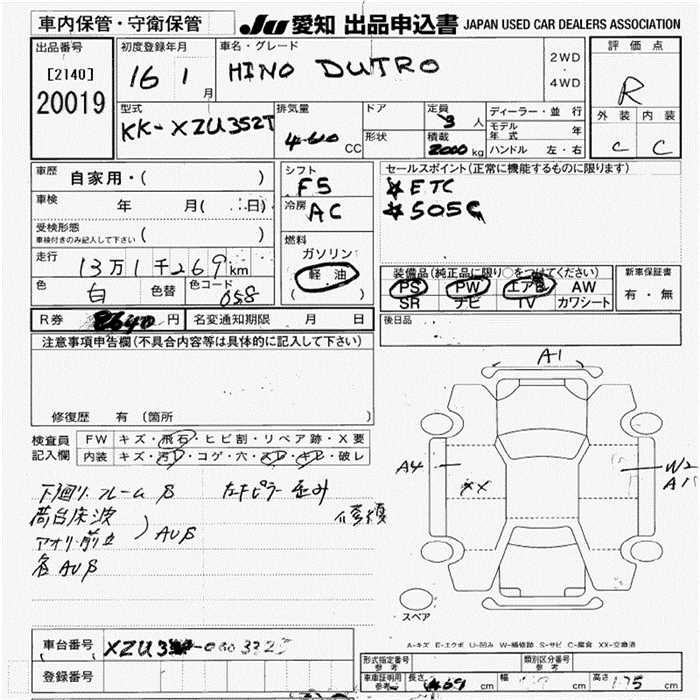 車内保管・守衛保管 JU 愛知 出品申込書 JAPAN USED CAR DEALERS ASSOCIATION
出品番号
[2140]
20019
初度登録年月
16 1 月
車名・グレード
HINO DUTRO
2WD
・
4WD
評価点
R
外装 内装
C C
型式
KK-XZU352T
排気量
CC
ドア
形状
定員
3 人
積載
2000 kg
ディーラー・並行
モデル年式 年
ハンドル 左・右
車歴
自家用・( )
車検
年 月( . 日)
受検形態
車検付きのみ記入して下さい ( )
走行
13万1千269km
色
白 色替 色コード 058
シフト
F5
冷房
AC
燃料
ガソリン
軽油
( )
セールスポイント(正常に機能するものに限ります)
☆ETC
装備品(純正品に限り○をつけてください)
PS PW エアB AW
SR ナビ TV カワシート
新車保証書
有・無
R券 8640円 名変通知期限 月 日
後日品
注意事項申告欄(不具合内容等は具体的に記入して下さい)
修復歴 有(箇所 )
検査員
記入欄
FW キズ・飛石・ヒビ割・リペア跡・X要
内装 キズ・汚レ・コゲ・穴・スレ・キレ・破レ
下回り.フレームS
荷台床波
アオリ・前立
AUS
各AUS
A1
A4
XX
W2
A1
スペア
A-キズ E-エクボ U-凹み W-補修跡 S-サビ C-腐食 XX-交換済
車台番号
登録番号
形式指定番号
参考
類別区分番号
参考
車庫証明用
参考 長さ 469 cm 幅 cm 高さ 175 cm